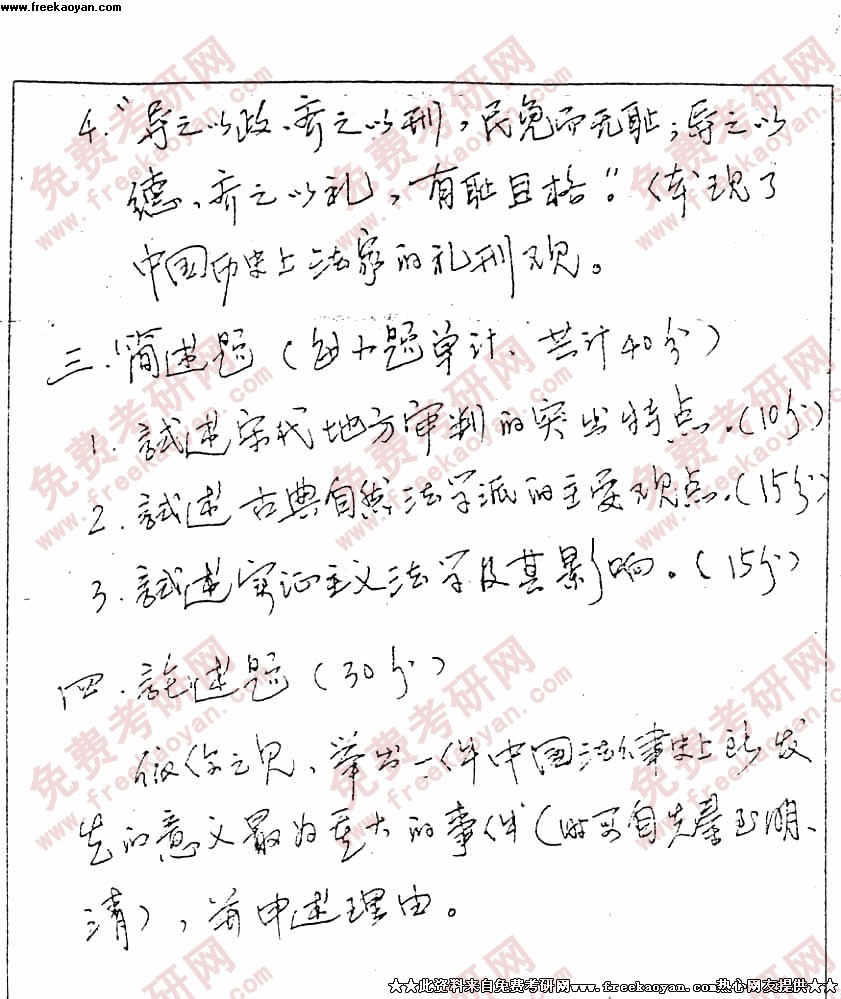 www.freekaoyan.com
4. "导之以政、齐之以刑，民免而无耻；导之以
德、齐之以礼，有耻且格"。体现了
中国历史上法家的礼刑观。
三. 简述题（每小题单计、共计40分）
1. 试述宋代地方审判的突出特点.(10分)
2. 试述古典自然法学派的主要观点.(15分)
3. 试述实证主义法学及其影响。(15分)
四. 论述题（30分）
依你之见、举出一件中国法律史上所发
生的意义最为重大的事件（时可自先秦至明、
清），并申述理由。
★★此资料来自免费考研网www.freekaoyan.com热心网友提供★★